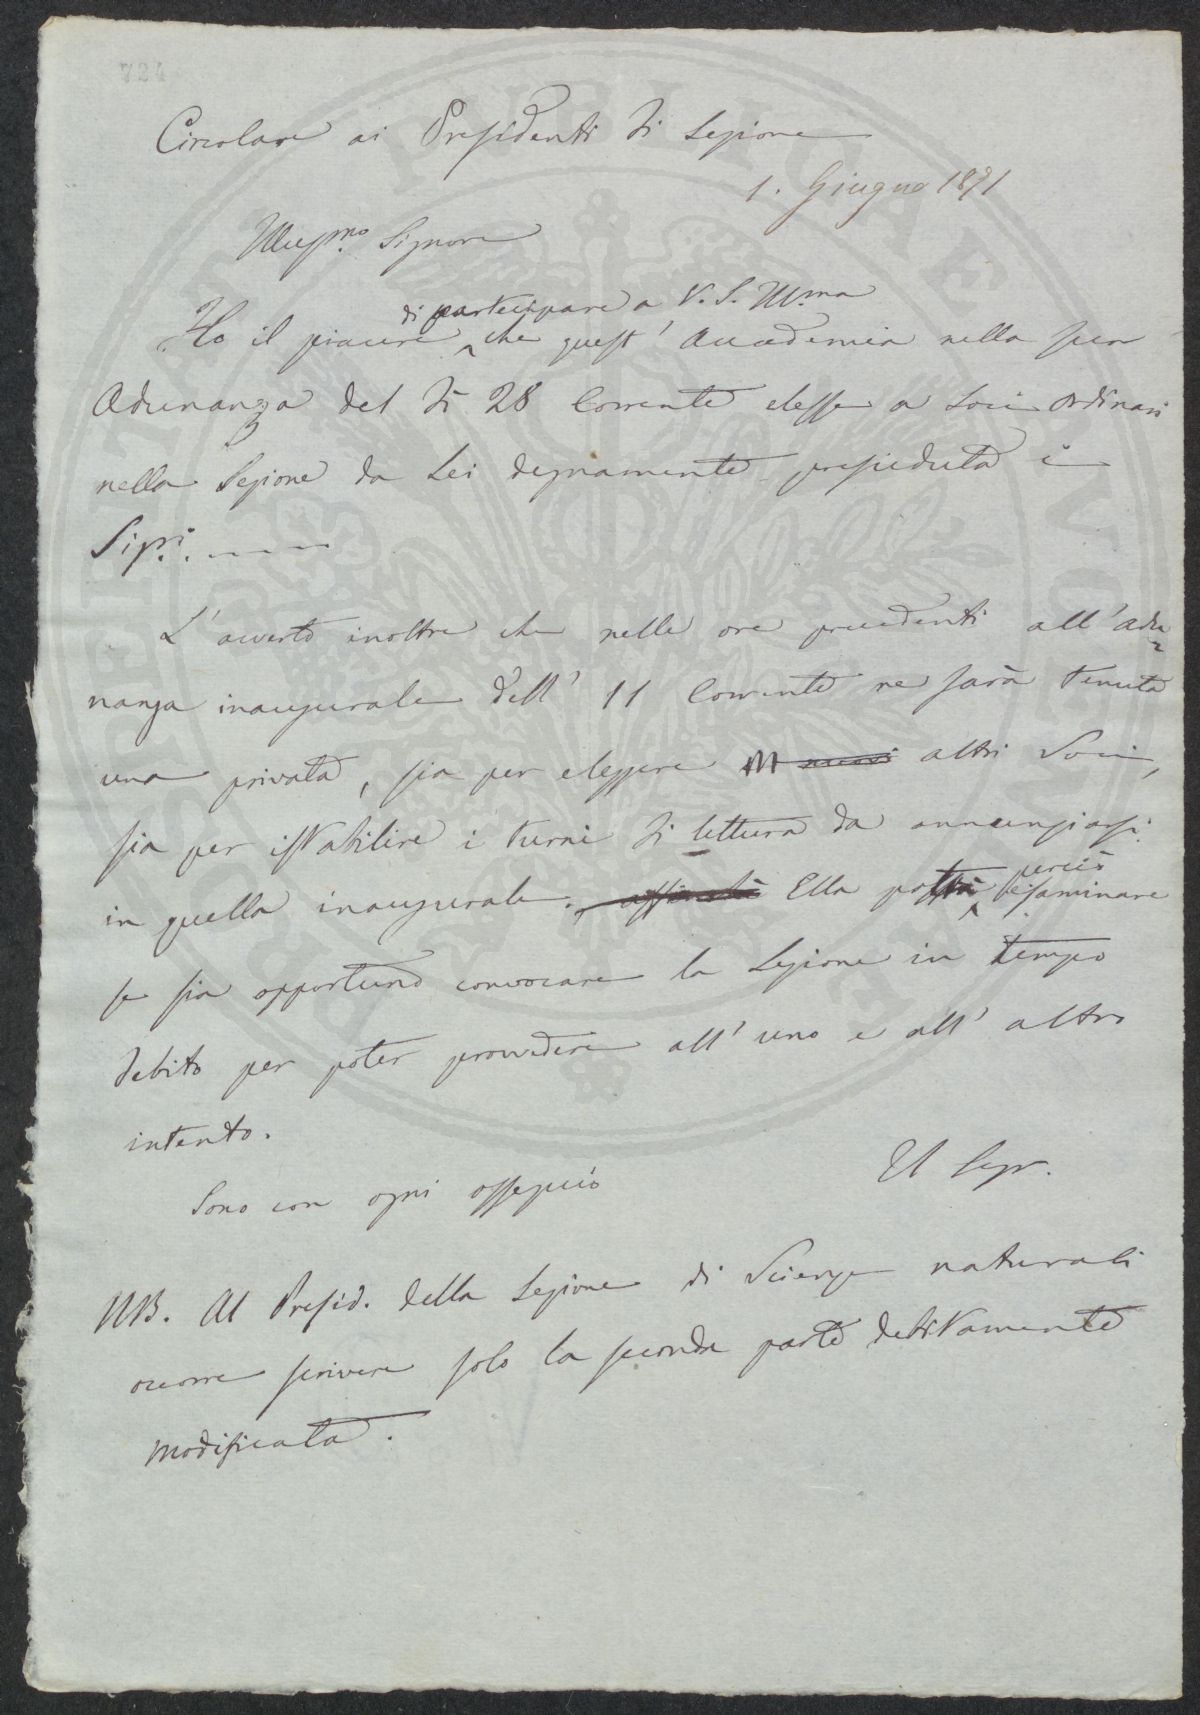 724
Circolare ai Presidenti di Sezione
1. Giugno 1871
Illus.mo Signore
di partecipare a V. S. Ill.ma
Ho il piacere che quest' Accademia nella sua
Adunanza del dì 28 Corrente elesse a Soci Ordinari
nella Sezione da Lei degnamente presieduta i
Sig.ri. ----
L'avverto inoltre che nelle ore precedenti all'adu
nanza inaugurale dell' 11 Corrente ne sarà tenuta
una privata, sia per eleggere nuovi altri Soci,
sia per istabilire i turni di lettura da annunziarsi
perciò
in quella inaugurale. Ella potrà esaminare
se sia opportuno convocare la Sezione in tempo
debito per poter provvedere all' uno e all' altro
intento.
Sono con ogni ossequio
Il Segr.
NB. Al Presid. della Sezione di Scienze naturali
occorre scrivere solo la seconda parte debitamente
modificata.